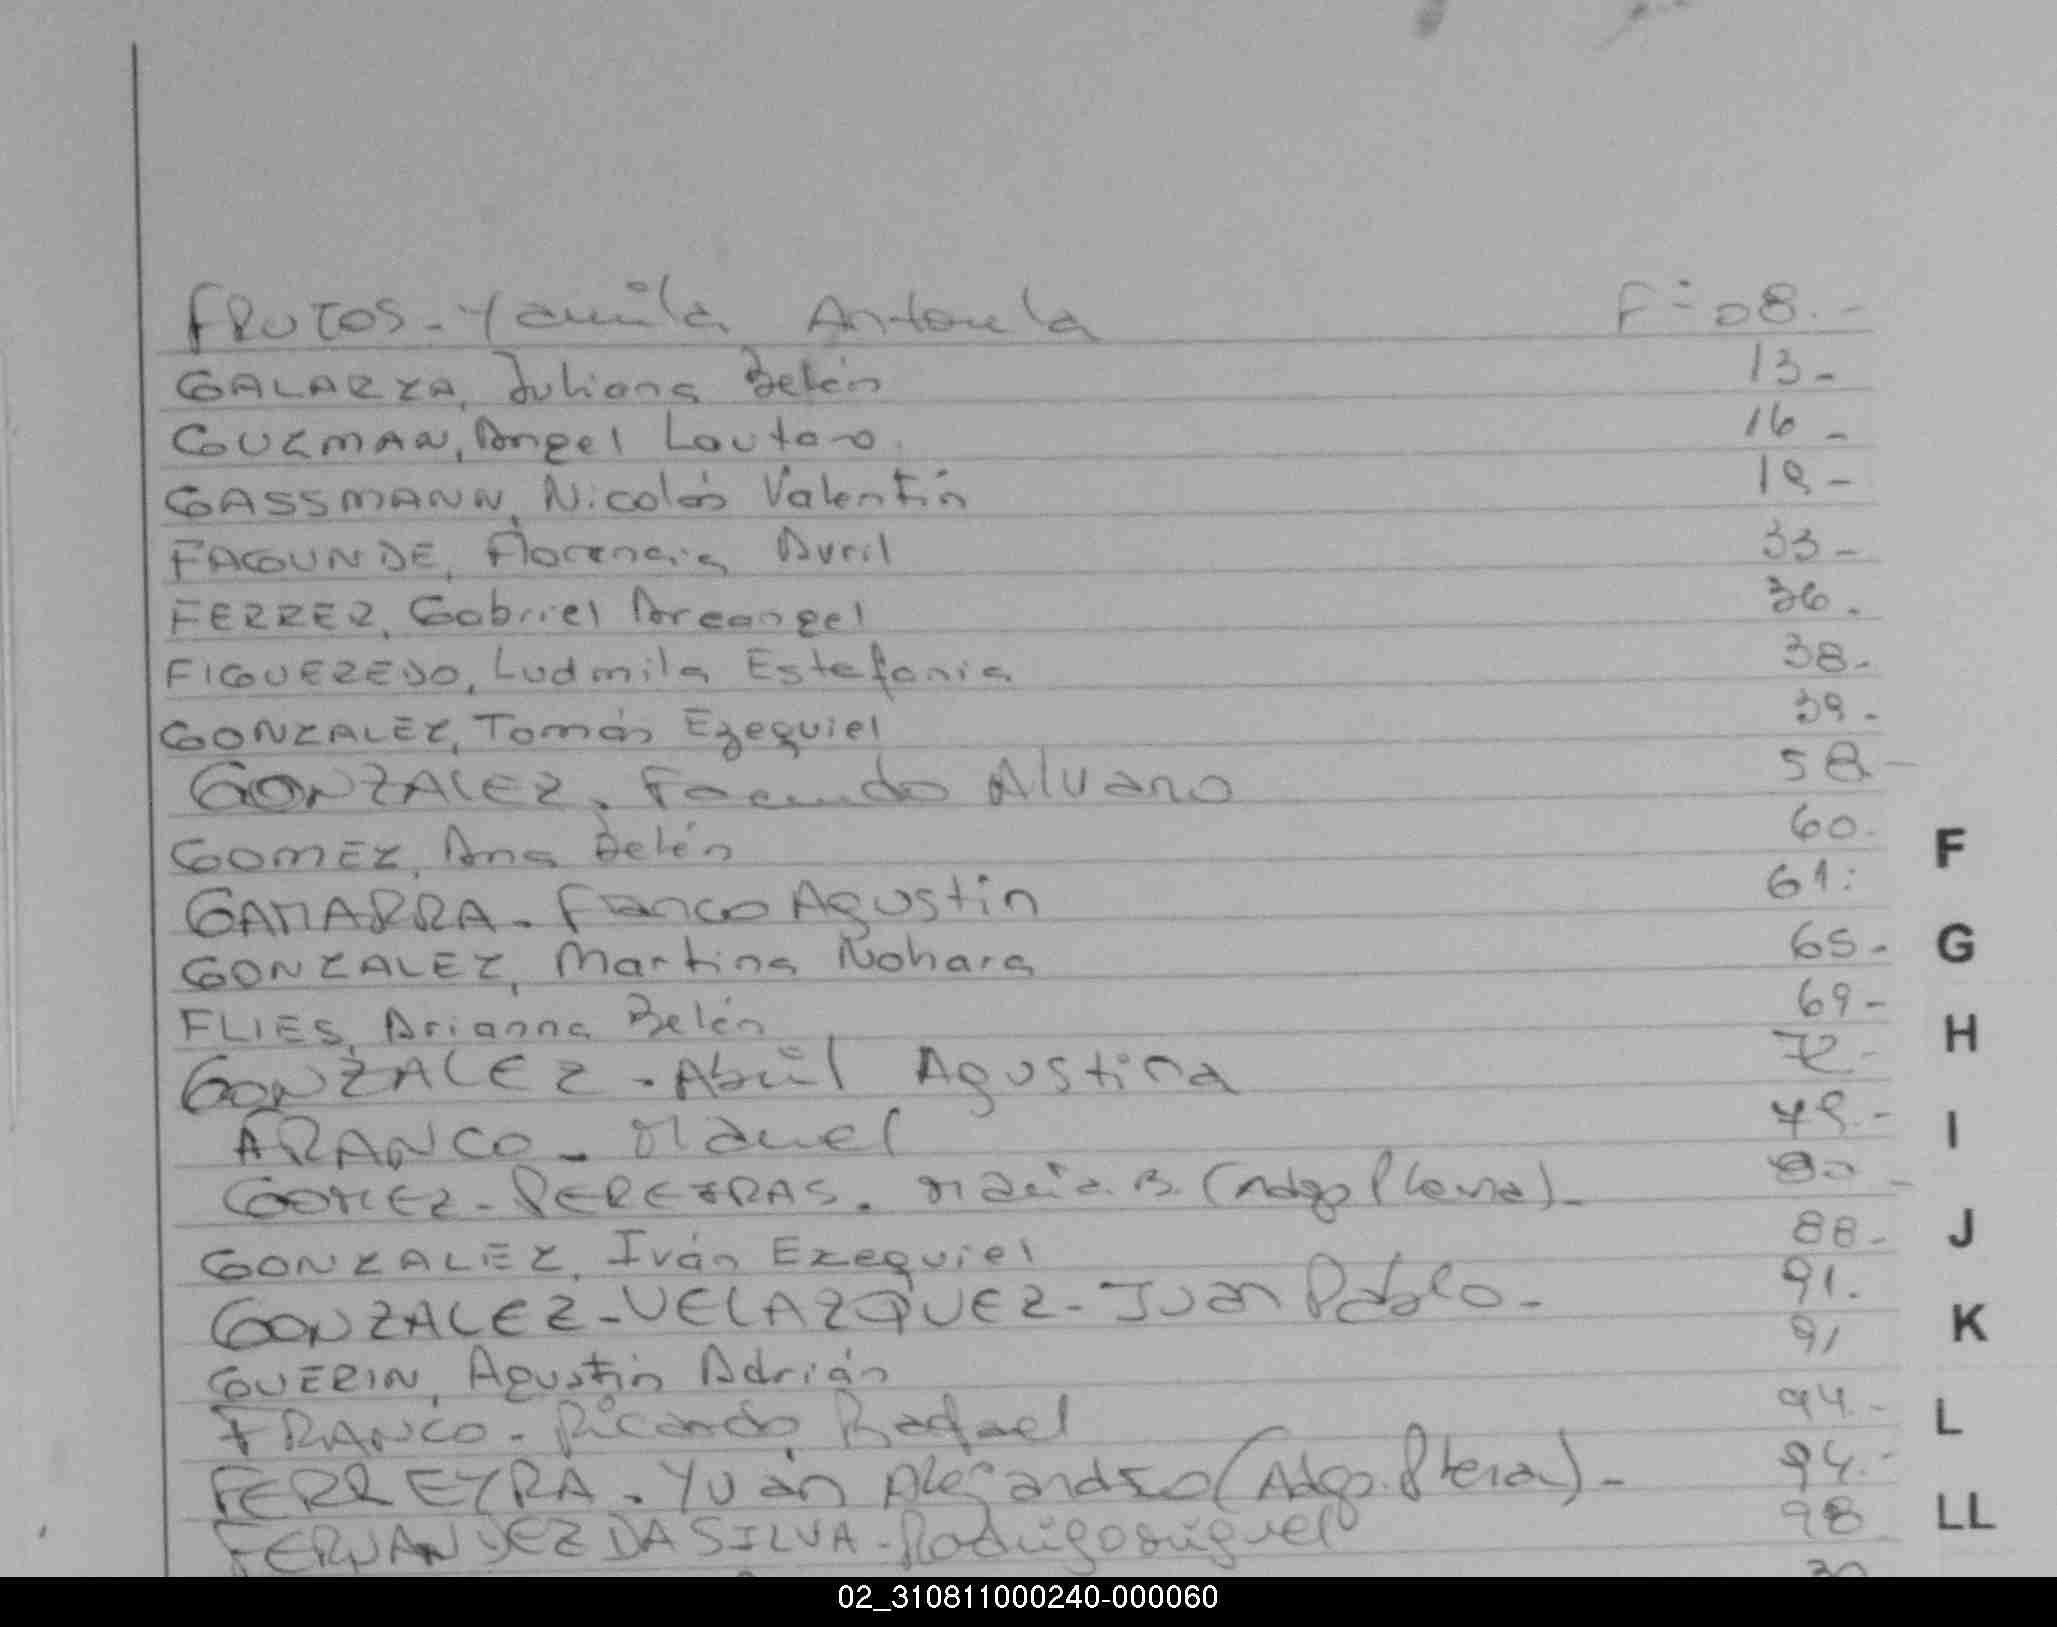 FRUTOS - Yamila Antonela Fº 08.-
GALARZA, Juliana Belén 13-
GUZMAN, Angel Lautaro. 16-
GASSMANN, Nicolás Valentín 18-
FAGUNDE, Florencia Avril 33-
FERRER, Gabriel Arcangel 36.
FIGUEREDO, Ludmila Estefania 38-
GONZALEZ, Tomás Ezequiel 39-
GONZALEZ. Facundo Alvaro 58-
GOMEZ, Ana Belén 60-
F
GAMARRA - Franco Agustin 61:
GONZALEZ, Martina Nohara 65-
G
FLIES, Arianna Belén 69-
H
GONZALEZ - Abril Agustina 72-
ARANCO - Manuel 79.-
I
GOMEZ - PEREYRAS. María B. (Adop Plena)- 80-
GONZALEZ, Iván Ezequiel 88-
J
GONZALEZ-VELAZQUEZ- Juan Pablo- 91.
GUERIN, Agustín Adrián 91
K
FRANCO - Ricardo Rafael 94.-
L
FERREYRA. Yván Alejandro (Adop. Plena)- 94.-
FERNANDEZ DA SILVA - Rodrigo Miguel 98
LL
02_310811000240-000060